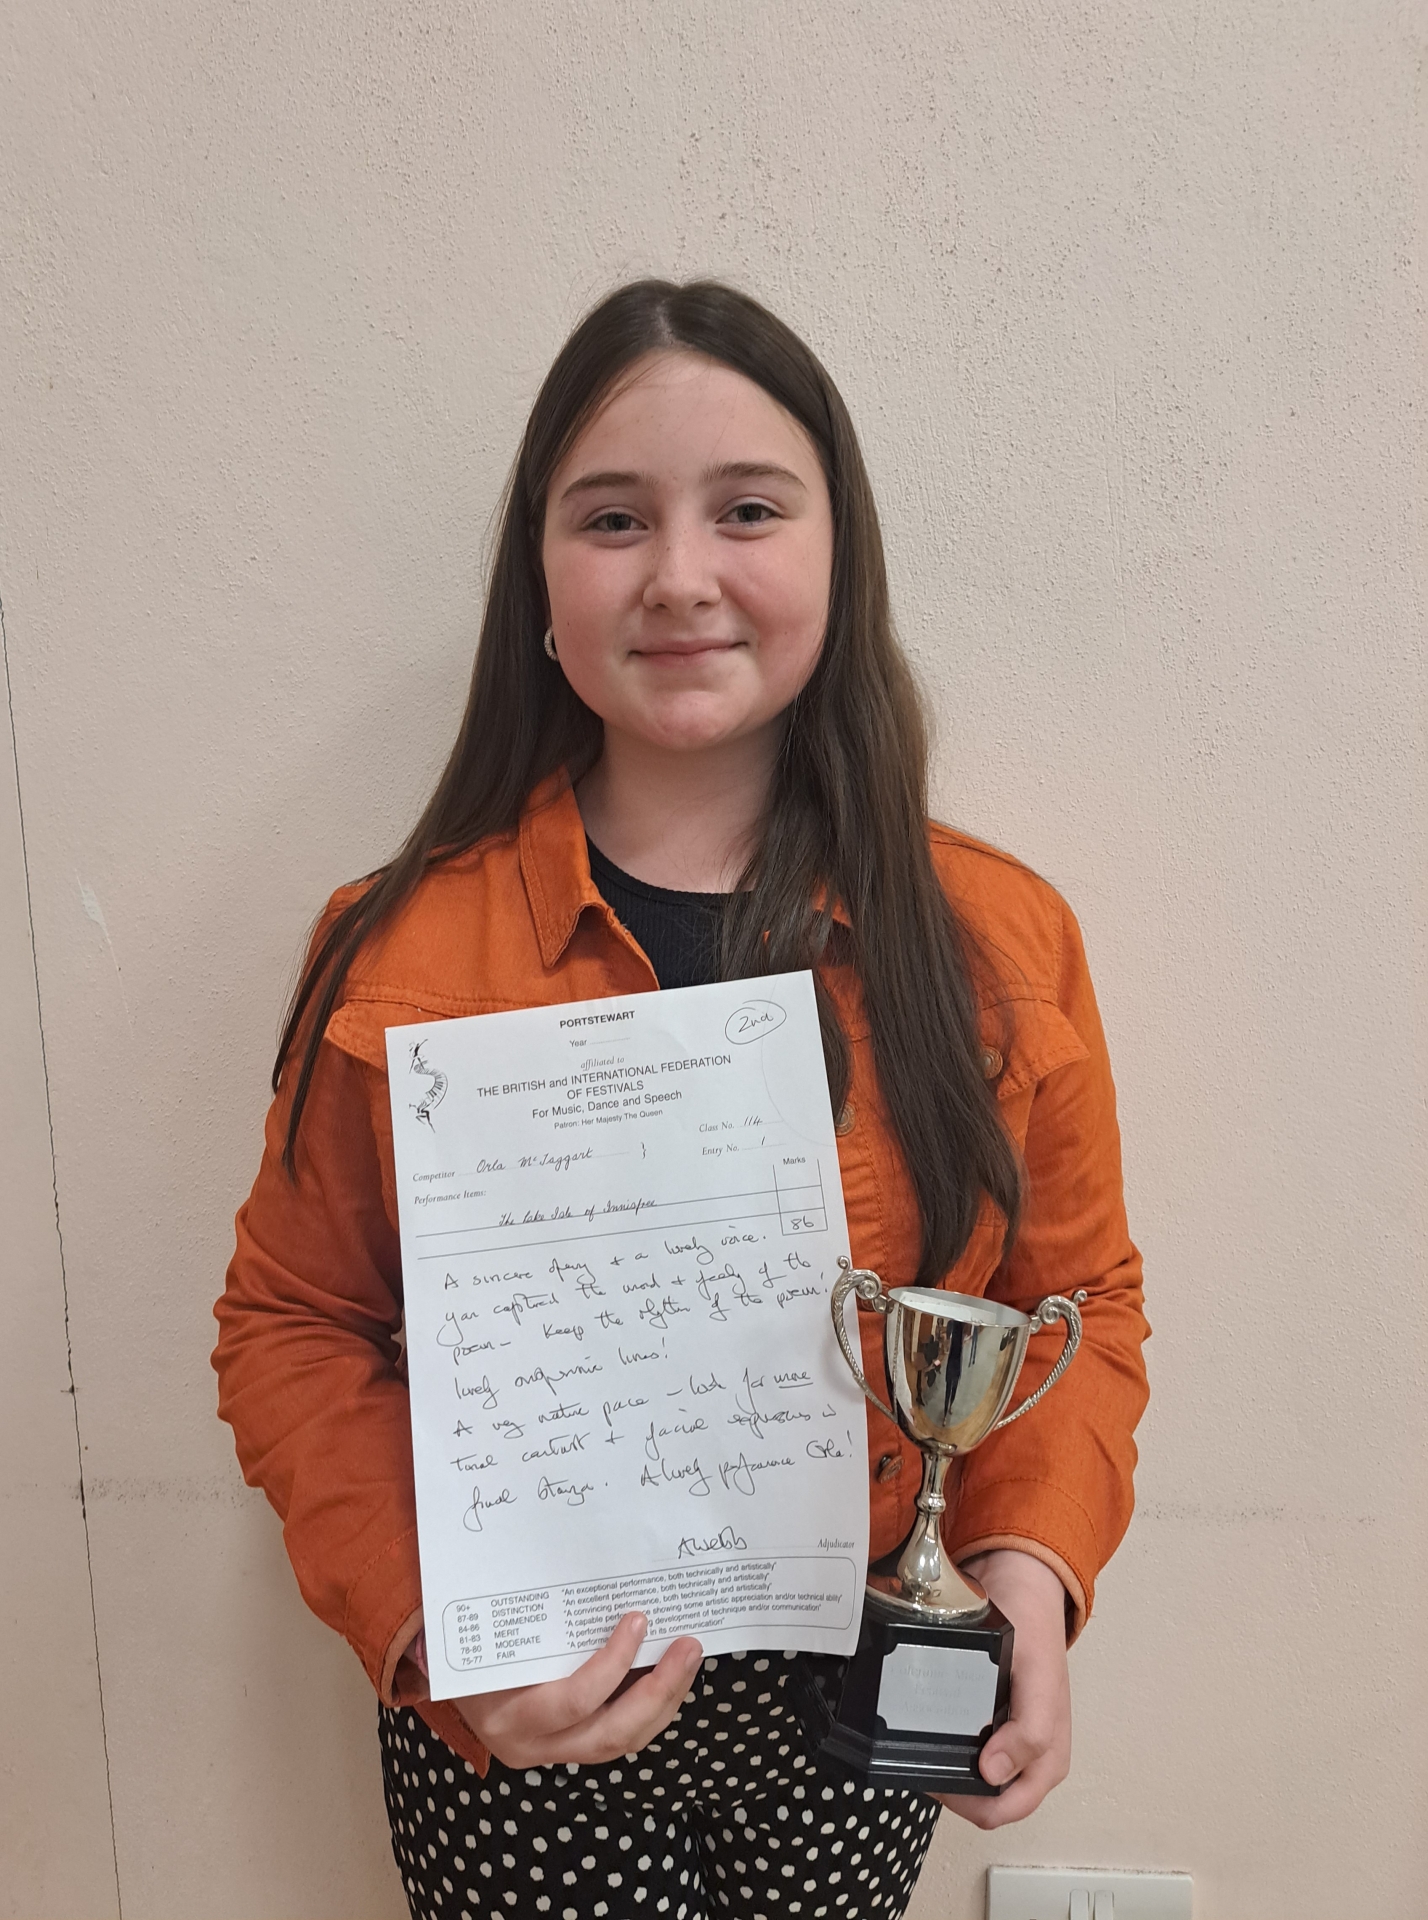 PORTSTEWART
2nd
Year
affiliated to
THE BRITISH and INTERNATIONAL FEDERATION
OF FESTIVALS
For Music, Dance and Speech
Patron: Her Majesty The Queen
Class No. 114
Competitor Orla McTaggart }
Entry No. 1
Performance Items:
Marks
The Lake Isle of Innisfree
86
A sincere opening + a lovely voice.
You captured the mood + feeling of the
poem - Keep the rhythm of the poem!
lovely onomatopoeic lines!
A very mature pace - look for more
tonal contrast + facial expressions in
final stanza. A lovely performance Orla!
AWebb
Adjudicator
90+ OUTSTANDING "An exceptional performance, both technically and artistically"
87-89 DISTINCTION "An excellent performance, both technically and artistically"
84-86 COMMENDED "A convincing performance, both technically and artistically"
81-83 MERIT "A capable performance showing some artistic appreciation and/or technical ability"
78-80 MODERATE "A performance development of technique and/or communication"
75-77 FAIR "A performance in its communication"